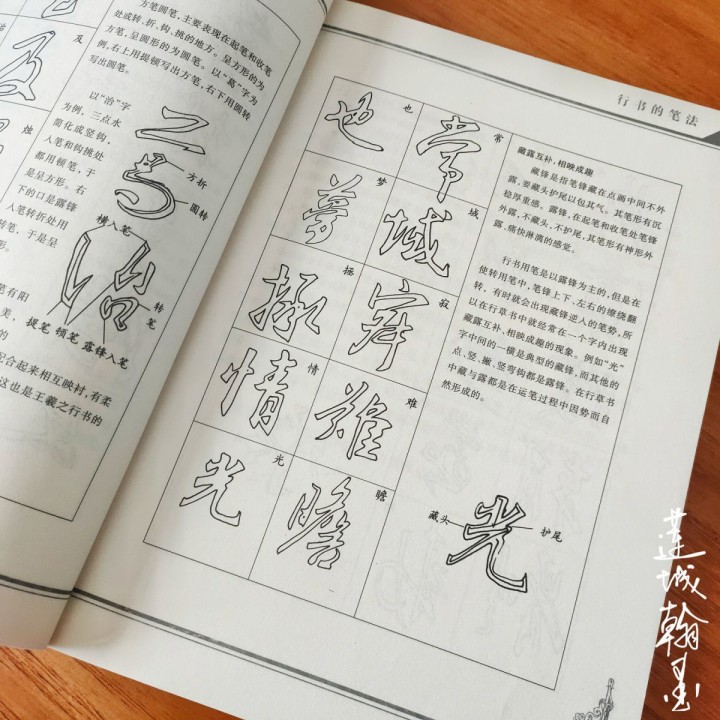 方笔圆笔，主要表现在起笔和收笔
处或转、折、钩、挑的地方。呈方形的为
方笔，呈圆形的为圆笔。以“葛”字为
例，右上用提顿写出方笔，右下用圆转
写出圆笔。
及
烛
以“治”字
为例，三点水
简化成竖钩，
入笔和钩挑处
都用顿笔，于
是呈方形。右
下的口是露锋
入笔转折处用
转笔，于是呈
形。
方折
圆转
横入笔
治
转笔
提笔 顿笔 露锋入笔
笔有阳
美，
的
配合起来相互映衬，有柔
这也是王羲之行书的
行书的笔法
也 也
常 常
梦 梦
城 城
拯 拯
寂 寂
情 情
难 难
光 光
瞻 瞻
藏露互补，相映成趣
藏锋是指笔锋藏在点画中间不外
露，要藏头护尾以包其气。其笔形有沉
稳厚重感。露锋，在起笔和收笔处笔锋
外露，不藏头，不护尾，其笔形有神形外
露、痛快淋漓的感觉。
行书用笔是以露锋为主的，但是在
使转用笔中，笔锋上下、左右的缭绕翻
转，有时就会出现藏锋逆入的笔势，所
以在行草书中就经常在一个字内出现
藏露互补、相映成趣的现象。例如“光”
字中间的一横是典型的藏锋，而其他的
点、竖、撇、竖弯钩都是露锋。在行草书
中藏与露都是在运笔过程中因势而自
然形成的。
藏头
光
护尾
莲城翰墨